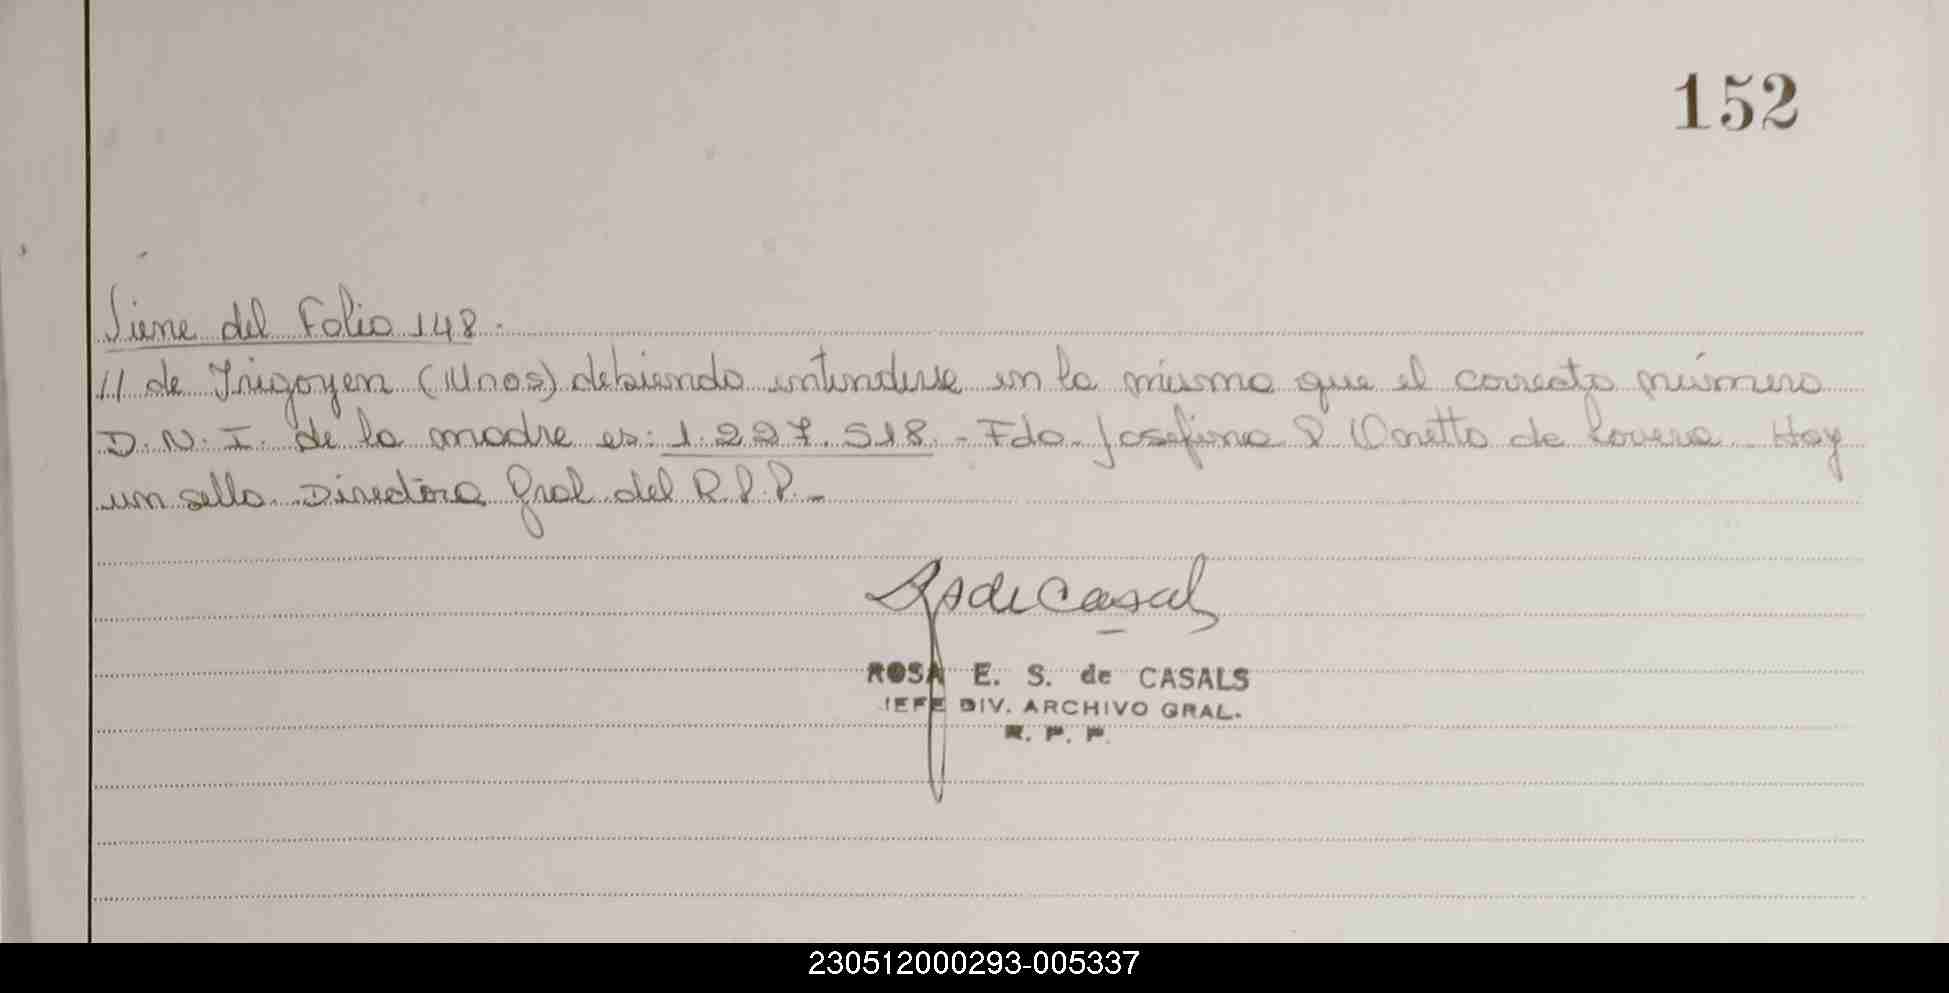 152
Viene del Folio 148.
// de Irigoyen (Mnes) debiendo entenderse en la misma que el correcto número
D.N.I. de la madre es: 1.227.518.- Fdo. Josefina P Onetto de Rovera. Hay
un sello. Directora Gral del R.P.P.-
ROSA E. S. de CASALS
JEFE DIV. ARCHIVO GRAL.
R. P. P.
230512000293-005337